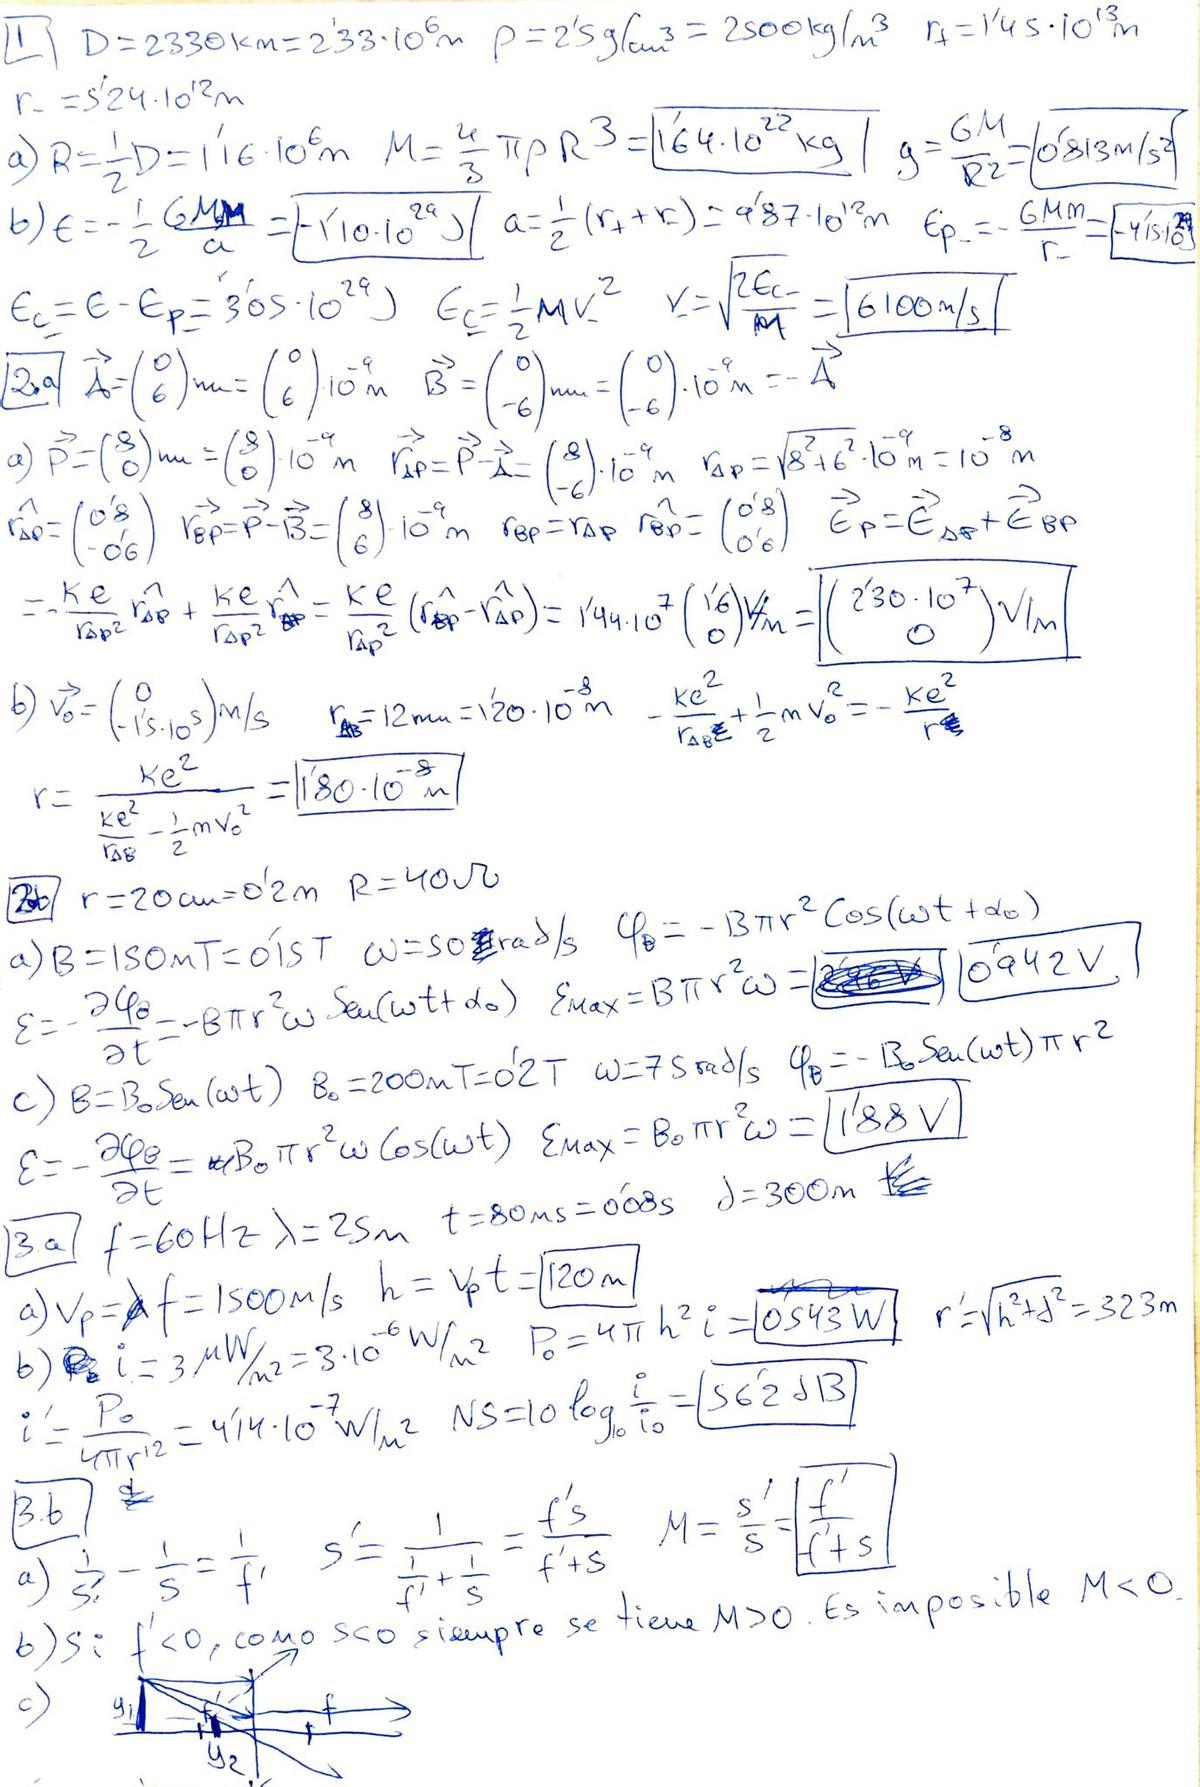 1 D=2330km=2'33·10⁶m ρ=2'5g/cm³=2500kg/m³ r₊=1'45·10¹³m
r₋=5'24·10¹²m
a) R=½D=1'16·10⁶m M=4/3 πρR³=1'64·10²² kg g=GM/R²=0'813m/s²
b) E=-½ GMM/a=-1'10·10²⁹J a=½(r₊+r₋)=9'87·10¹²m Ep₋=-GMm/r₋=-4'15·10²⁹J
Ec₋=E-Ep₋=3'05·10²⁹J Ec₋=½MV₋² V₋=√(2Ec₋/M)=6100m/s
2.a A⃗=(0 6)nm=(0 6)·10⁻⁹m B⃗=(0 -6)nm=(0 -6)·10⁻⁹m=-A⃗
a) P⃗=(8 0)nm=(8 0)·10⁻⁹m r⃗AP=P⃗-A⃗=(8 -6)·10⁻⁹m rAP=√(8²+6²)·10⁻⁹m=10⁻⁸m
r̂AP=(0'8 -0'6) r⃗BP=P⃗-B⃗=(8 6)·10⁻⁹m rBP=rAP r̂BP=(0'8 0'6) E⃗P=E⃗AP+E⃗BP
=-Ke/rAP² r̂AP+Ke/rAP² r̂BP=Ke/rAP² (r̂BP-r̂AP)=1'44·10⁷(1'6 0)V/m=(2'30·10⁷ 0)V/m
b) v⃗₀=(0 -1'5·10⁵)m/s rAB=12nm=1'20·10⁻⁸m -Ke²/rAB+½mv₀²=-Ke²/r
r=Ke²/(Ke²/rAB-½mv₀²)=1'80·10⁻⁸m
2b r=20cm=0'2m R=40Ω
a) B=150mT=0'15T ω=50rad/s φB=-Bπr²Cos(ωt+α₀)
ε=-∂φB/∂t=-Bπr²ω Sen(ωt+α₀) εMAX=Bπr²ω=0'942V
c) B=B₀Sen(ωt) B₀=200mT=0'2T ω=75rad/s φB=-B₀Sen(ωt)πr²
ε=-∂φB/∂t=B₀πr²ωCos(ωt) εMAX=B₀πr²ω=1'88V
3.a f=60Hz λ=25m t=80ms=0'08s d=300m
a) Vp=λf=1500m/s h=Vpt=120m
b) i=3μW/m²=3·10⁻⁶W/m² P₀=4πh²i=0'543W r'=√(h²+d²)=323m
i'=P₀/4πr'²=4'14·10⁻⁷W/m² NS=10 log₁₀ i/i₀=56'2dB
3.b
a) 1/s'-1/s=1/f' s'=1/(1/f'+1/s)=f's/(f'+s) M=s'/s=f'/(f'+s)
b) Si f'<0, como s<0 siempre se tiene M>0. Es imposible M<0.
c) y₁ f' f
y₂